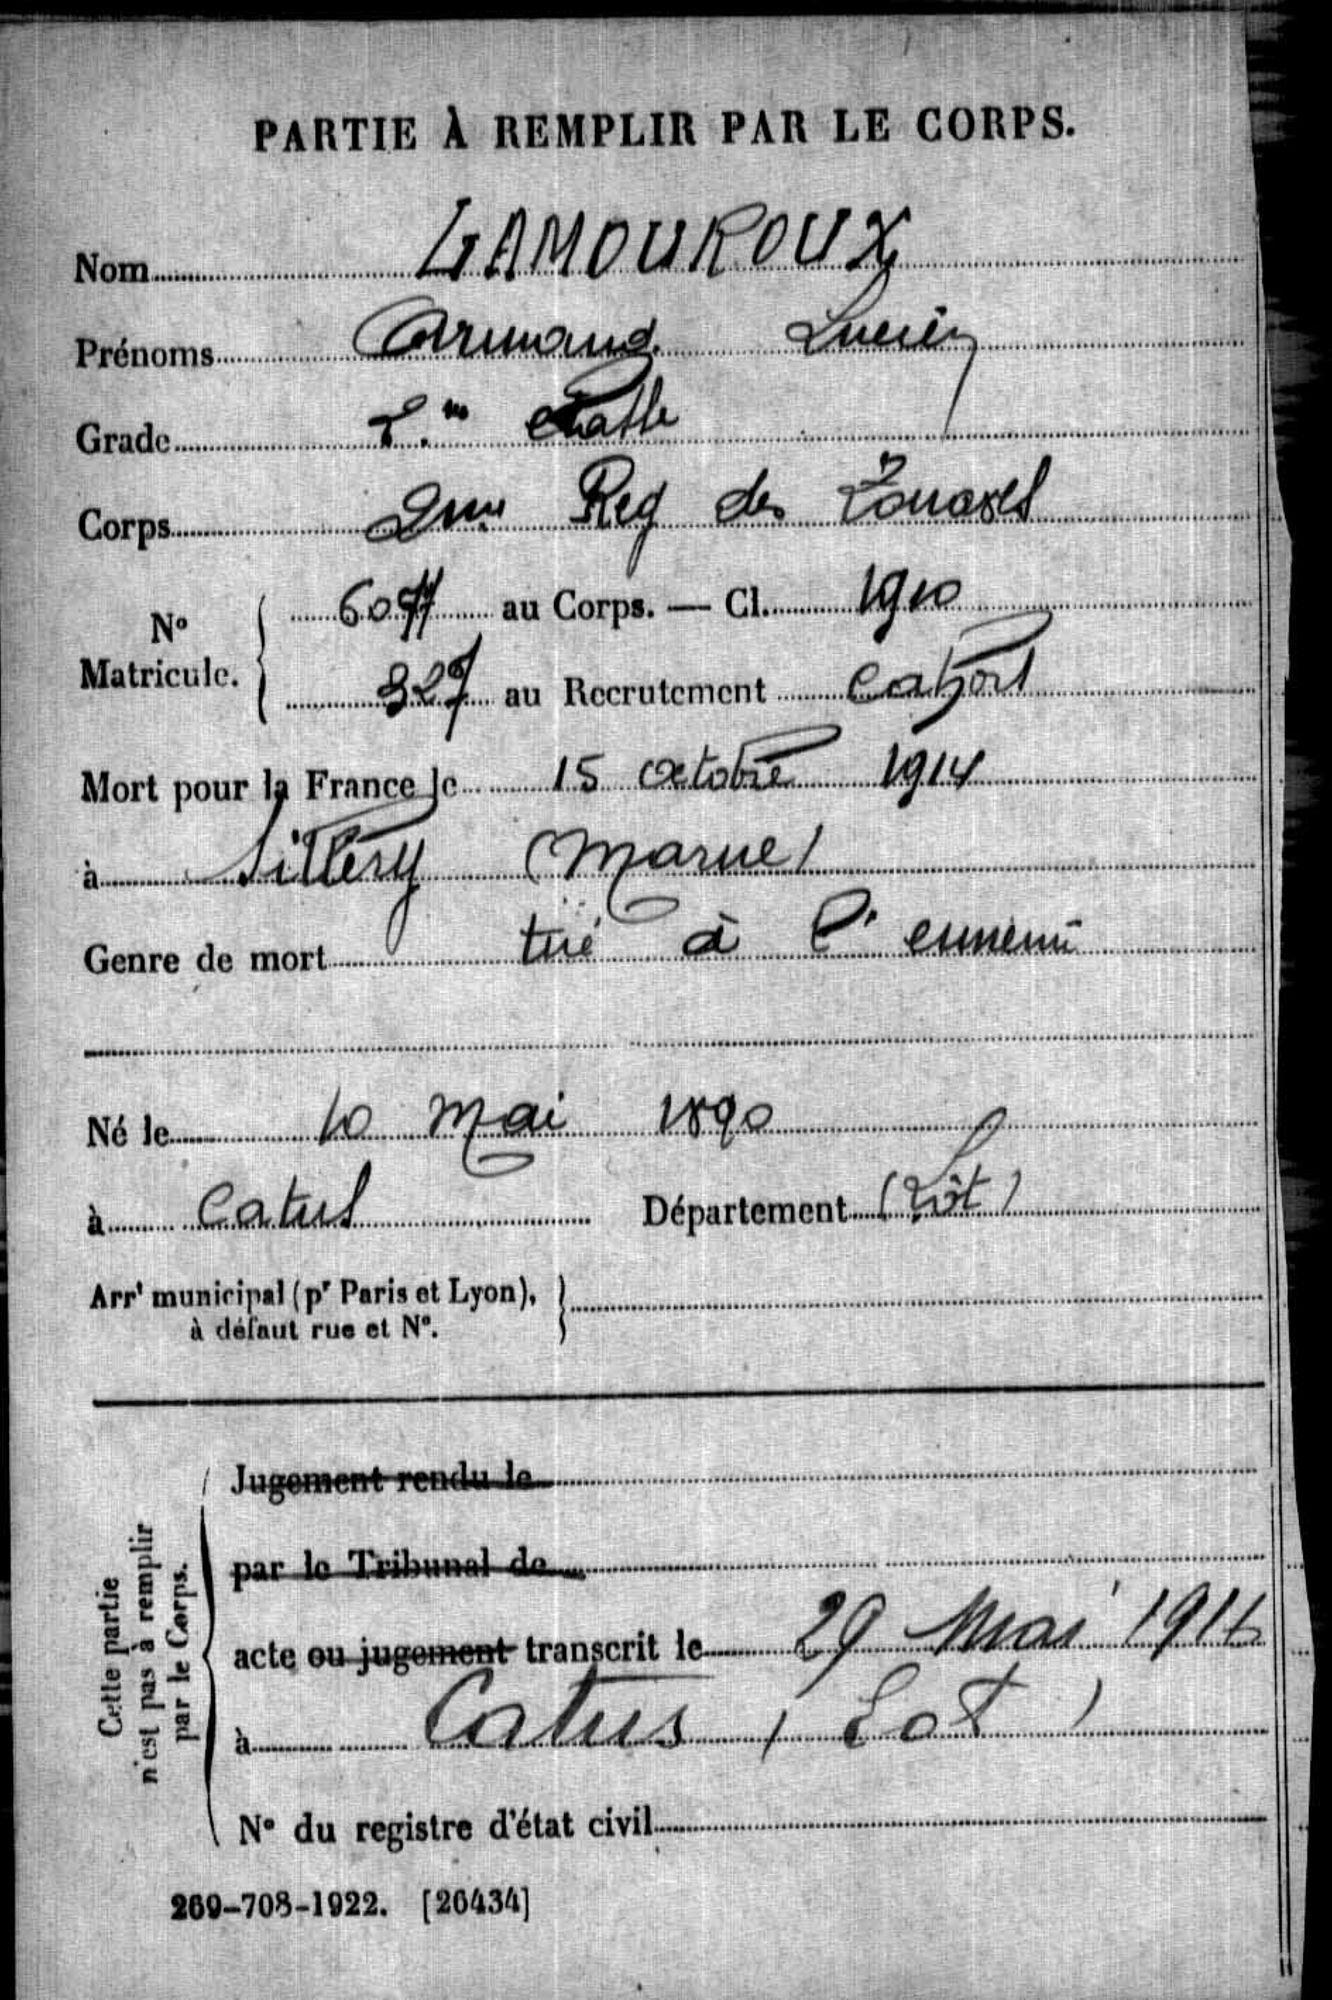 PARTIE À REMPLIR PAR LE CORPS.
Nom LAMOUROUX
Prénoms Armand Lucien
Grade 2.me classe
Corps 2me Reg des Zouaves
No Matricule. 6077 au Corps. — Cl. 1910
327 au Recrutement Cahors
Mort pour la France le 15 octobre 1914
à Sillery (Marne)
Genre de mort tué à l'ennemi
Né le 10 mai 1890
à Catus Département (Lot)
Arrt municipal (pr Paris et Lyon),
à défaut rue et N°.
Cette partie
n'est pas à remplir
par le Corps.
Jugement rendu le
par le Tribunal de
acte ou jugement transcrit le 29 Mai 1916
à Catus (Lot)
N° du registre d'état civil
269-708-1922. [26434]